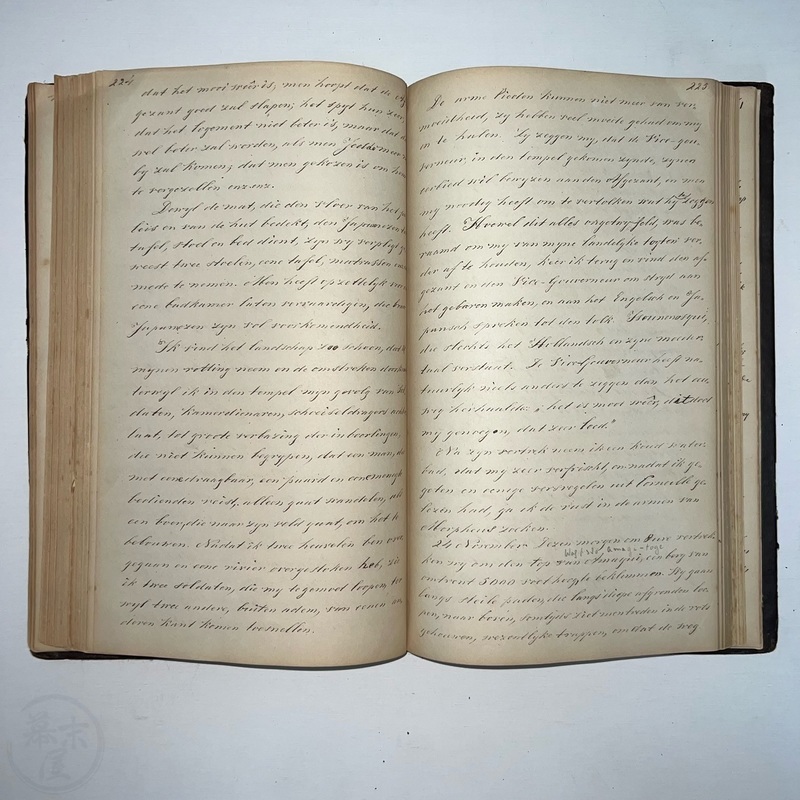 224
dat het mooi weêr is, men hoopt dat de
gezant goed zal slapen; het spyt hun zeer
dat het logement niet beter is, maar dat
wel beter zal worden, als men Jeddo
by zal komen; dat men gekozen is om
te vergezellen enz enz.
Dewyl de mat, die den vloer van het
leis en van de hut bedekt, den Japannezen
tafel, stoel en bed dient, zyn wy verpligt
weest twee stoelen, eene tafel, matrassen
mede te nemen. Men heeft opzettelyk
eene badkamer laten vervaardigen, die
Japannezen zyn vol voorkomendheid.
Ik vind het landschap zoo schoon, dat
mynen rotting neem en de omstreken
terwyl ik in den tempel myn gevolg van
daten, kamerdienaren,
laat, tot groote verbazing der inboorlingen,
die niet kunnen begrypen, dat een man, die
met een draagbaar, een paard en
bedienden reist, alleen gaat wandelen, als
een boer, die naar zyn veld gaat, om het te
bebouwen. Nadat ik twee heuvelen ben
gegaan en eene rivier overgestoken heb, zie
ik twee soldaten, die my tegemoet loopen,
wyl twee andere, buiten adem, van eenen
deren kant komen toesnellen.
225
De arme lieden kunnen niet meer van ver-
moeidheid, zy hebben veel moeite gehad om my
in te halen. Zy zeggen my, dat de Vice-gou-
verneur, in den tempel gekomen zynde, zynen
eerbied wil bewyzen aan den Afgezant, en men
my noodig heeft om te vertolken wat hy te zeggen
heeft. Hoewel dit alles ongetwyfeld, was be-
raamd om my van myne landelyke togten ver-
der af te houden, keer ik terug en vind den af-
gezant en den Vice-Gouverneur om stryd aan
het gebaren maken, en aan het Engelsch en Ja-
pansch spreken tot den tolk
die slechts het Hollandsch en zyne moeder-
taal verstaat. De Vice-Gouverneur heeft na-
tuurlyk niets anders te zeggen dan het
weg herhaalde: "het is mooi weêr, dit doet
my genoegen, dat zeer leed."
Na zyn vertrek neem ik een koud water-
bad, dat my zeer verfrischt, en nadat ik ge-
geten en eenige versregelen uit Corneille ge-
lezen had, ga ik de rust in de armen van
Morpheus zoeken.
24 November. Dezen morgen om uur vertrek-
ken wy om den top van Amagui, een berg van
omtrent 5000 voet hoogte beklimmen. Wy gaan
langs steile paden, die langs diepe afgronden loo-
pen, naar boven, somtyds ziet men treden in de rots
gehouwen, wezenlyke trappen, omdat de weg
幕末屋